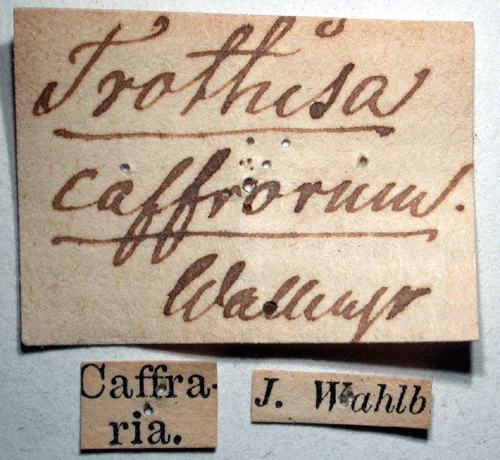 Trothisa
caffrorum.
Wallengr
Caffra-
ria.
J. Wahlb